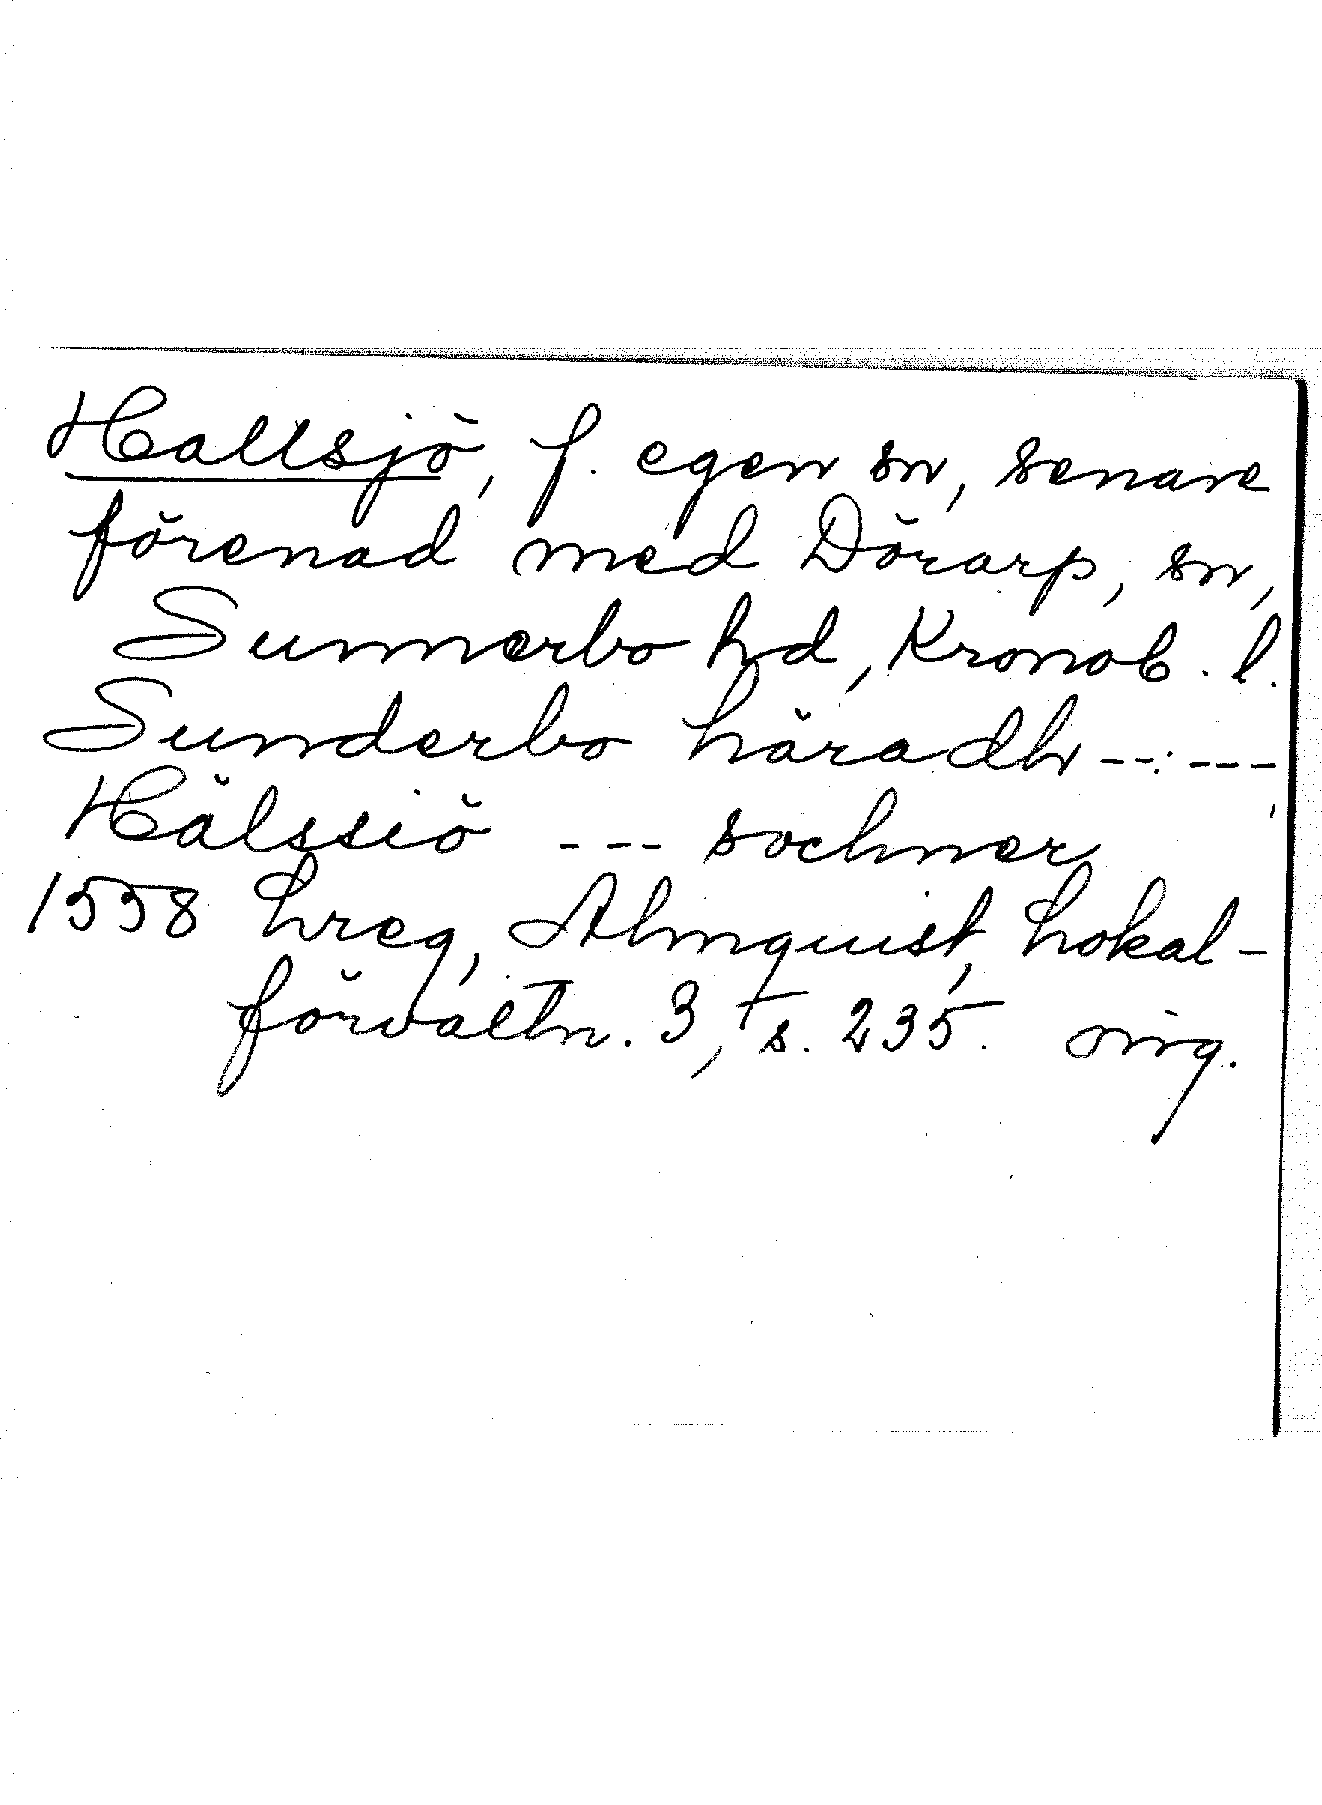 Hallsjö, f. egen sn, senare
förenad med Dörarp, sn,
Sunnerbo hd, Kronob. l.
Sunderbo häradh -- ---,
Hälssiö --- sochner
1558 hreg, Almquist, Lokal-
förvaltn. 3, s. 235. orig.